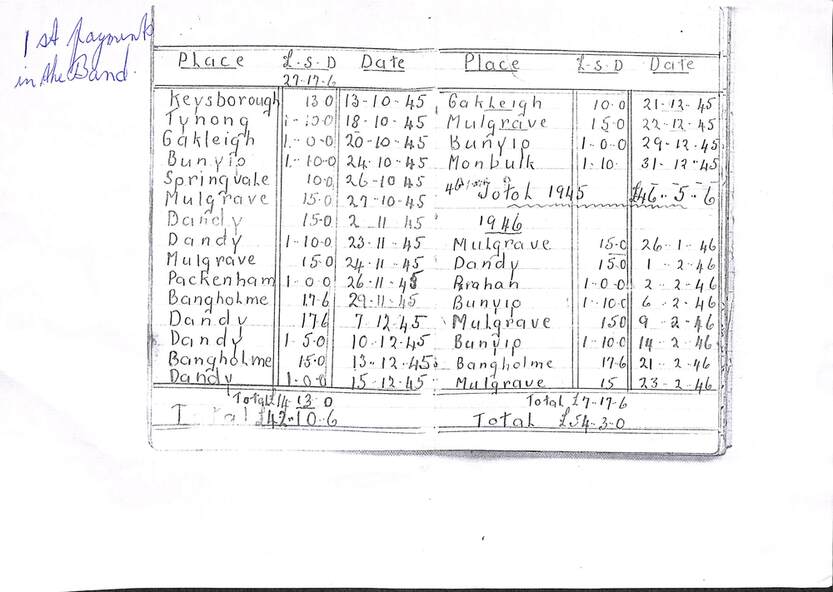 1st payments
in the Band.
Place £-S-D Date
27-17-6
Keysborough 13 0 13-10-45
Tynong 1-10-0 18-10-45
Oakleigh 1-0-0 20-10-45
Bunyip 1-10-0 24-10-45
Springvale 10 0 26-10 45
Mulgrave 15.0 27-10-45
Dandy 15.0 2 11 45
Dandy 1-10-0 23-11-45
Mulgrave 15.0 24-11-45
Packenham 1-0-0 26-11-45
Bangholme 17-6 29-11-45
Dandy 17 6 7 12.45
Dandy 1-5.0 10-12-45
Bangholme 15.0 13-12-45
Dandy 1-0-0 15-12-45
Total £14 13 0
Total £42-10-6
Place £-S-D Date
Oakleigh 10-0 21-12-45
Mulgrave 15-0 22-12-45
Bunyip 1-0-0 29-12-45
Monbulk 1-10- 31-12-45
Total 1945 £46-5-6
1946
Mulgrave 15-0 26-1-46
Dandy 15.0 1-2-46
Prahan 1-0-0 2-2-46
Bunyip 1-10-0 6-2-46
Mulgrave 15 0 9-2-46
Bunyip 1-10-0 14-2-46
Bangholme 17-6 21-2-46
Mulgrave 15 23-2-46
Total £7-17-6
Total £54-3-0